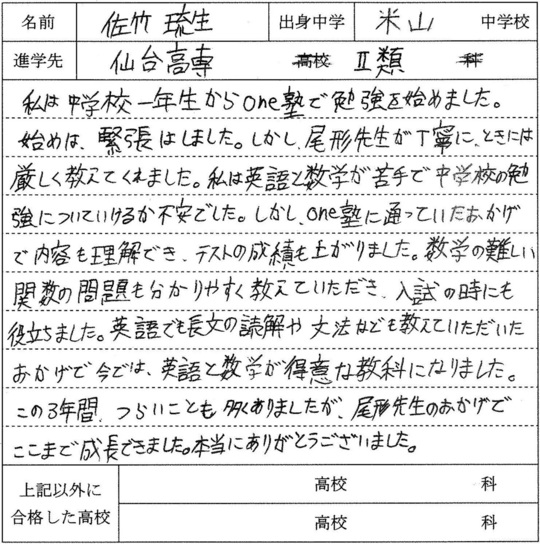 名前 佐竹 琉生 出身中学 米山 中学校
進学先 仙台高専 高校 Ⅱ類 科
私は中学校一年生からone塾で勉強を始めました。
始めは、緊張はしました。しかし、尾形先生が丁寧に、ときには
厳しく教えてくれました。私は英語と数学が苦手で中学校の勉
強についていけるか不安でした。しかし、one塾に通っていたおかげ
で内容も理解でき、テストの成績も上がりました。数学の難しい
関数の問題も分かりやすく教えていただき、入試の時にも
役立ちました。英語でも長文の読解や文法なども教えていただいた
おかげで今では、英語と数学が得意な教科になりました。
この3年間、つらいことも多くありましたが、尾形先生のおかげで
ここまで成長できました。本当にありがとうございました。
上記以外に 高校 科
合格した高校 高校 科